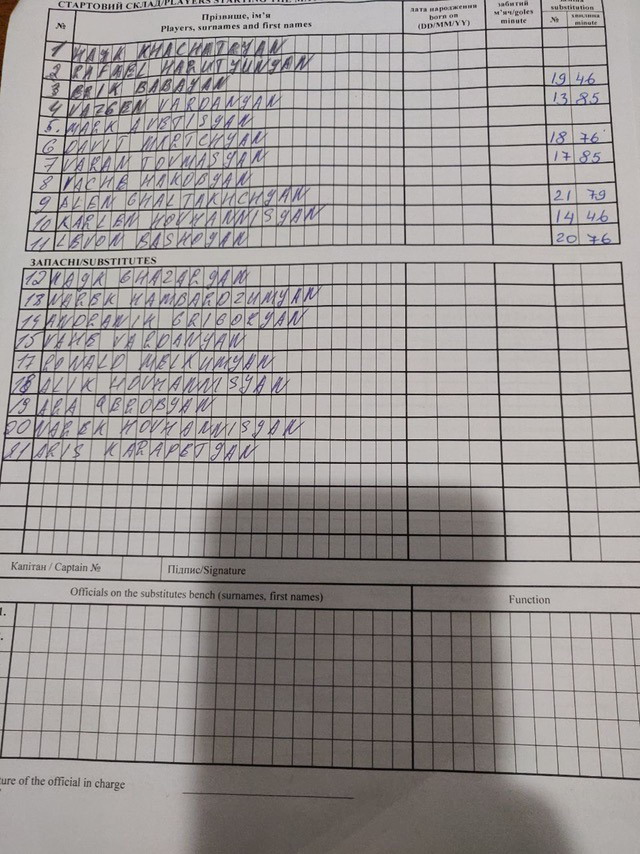 СТАРТОВИЙ СКЛАД/PLAYERS STARTING THE
№ Прізвище, ім'я Players, surnames and first names дата народження born on (DD/MM/YY) забитий м'яч/goles minute substitution № хвилина minute
1 HAYK KHACHATRYAN
2 RAFAEL HARUTYUNYAN
3 ERIK BABAYAN 19 46
4 VAZGEN VARDANYAN 13 85
5. MARK AVETISYAN
6 DAVIT MKRTCHYAN 18 76
7 VARAN TOVMASYAN 17 85
8 VACHE HAKOBYAN
9 ALEN GHALTAKHCHYAN 21 79
10 KARLEN HOVHANNISYAN 14 46
11 LEVON BASHOYAN 20 76
ЗАПАСНІ/SUBSTITUTES
12 HAYK GHAZARYAN
13 NAREK HAMBARDZUMYAN
14 ANDRANIK GRIGORYAN
15 VAHE VARDANYAN
17 RONALD MELKUMYAN
18 ALIK HOVHANNISYAN
19 ARA QEROBYAN
20 NAREK HOVHANNISYAN
21 ARIS KARAPETYAN
Капітан / Captain № Підпис/Signature
Officials on the substitutes bench (surnames, first names) Function
1.
ture of the official in charge